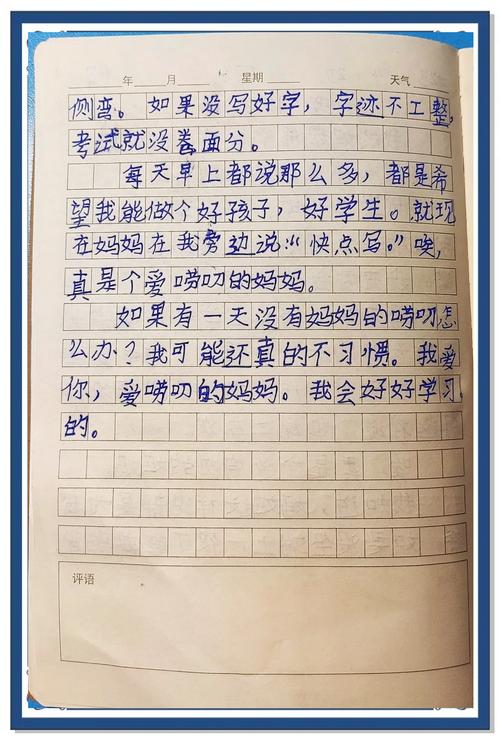 年 月 星期 天气
侧弯。如果没写好字，字迹不工整，
考试就没卷面分。
每天早上都说那么多，都是希
望我能做个好孩子，好学生。就现
在妈妈在我旁边说：“快点写。”唉，
真是个爱唠叨的妈妈。
如果有一天没有妈妈的唠叨怎
么办？我可能还真的不习惯。我爱
你，爱唠叨的妈妈。我会好好学习
的。
评语